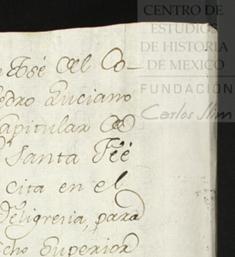 CENTRO DE
ESTUDIOS
DE HISTORIA
DE MEXICO
FUNDACIÓN
Carlos Slim
Jose del Co-
edro Luciano
apitular
Santa Feé
cita en el
para
cho Superior